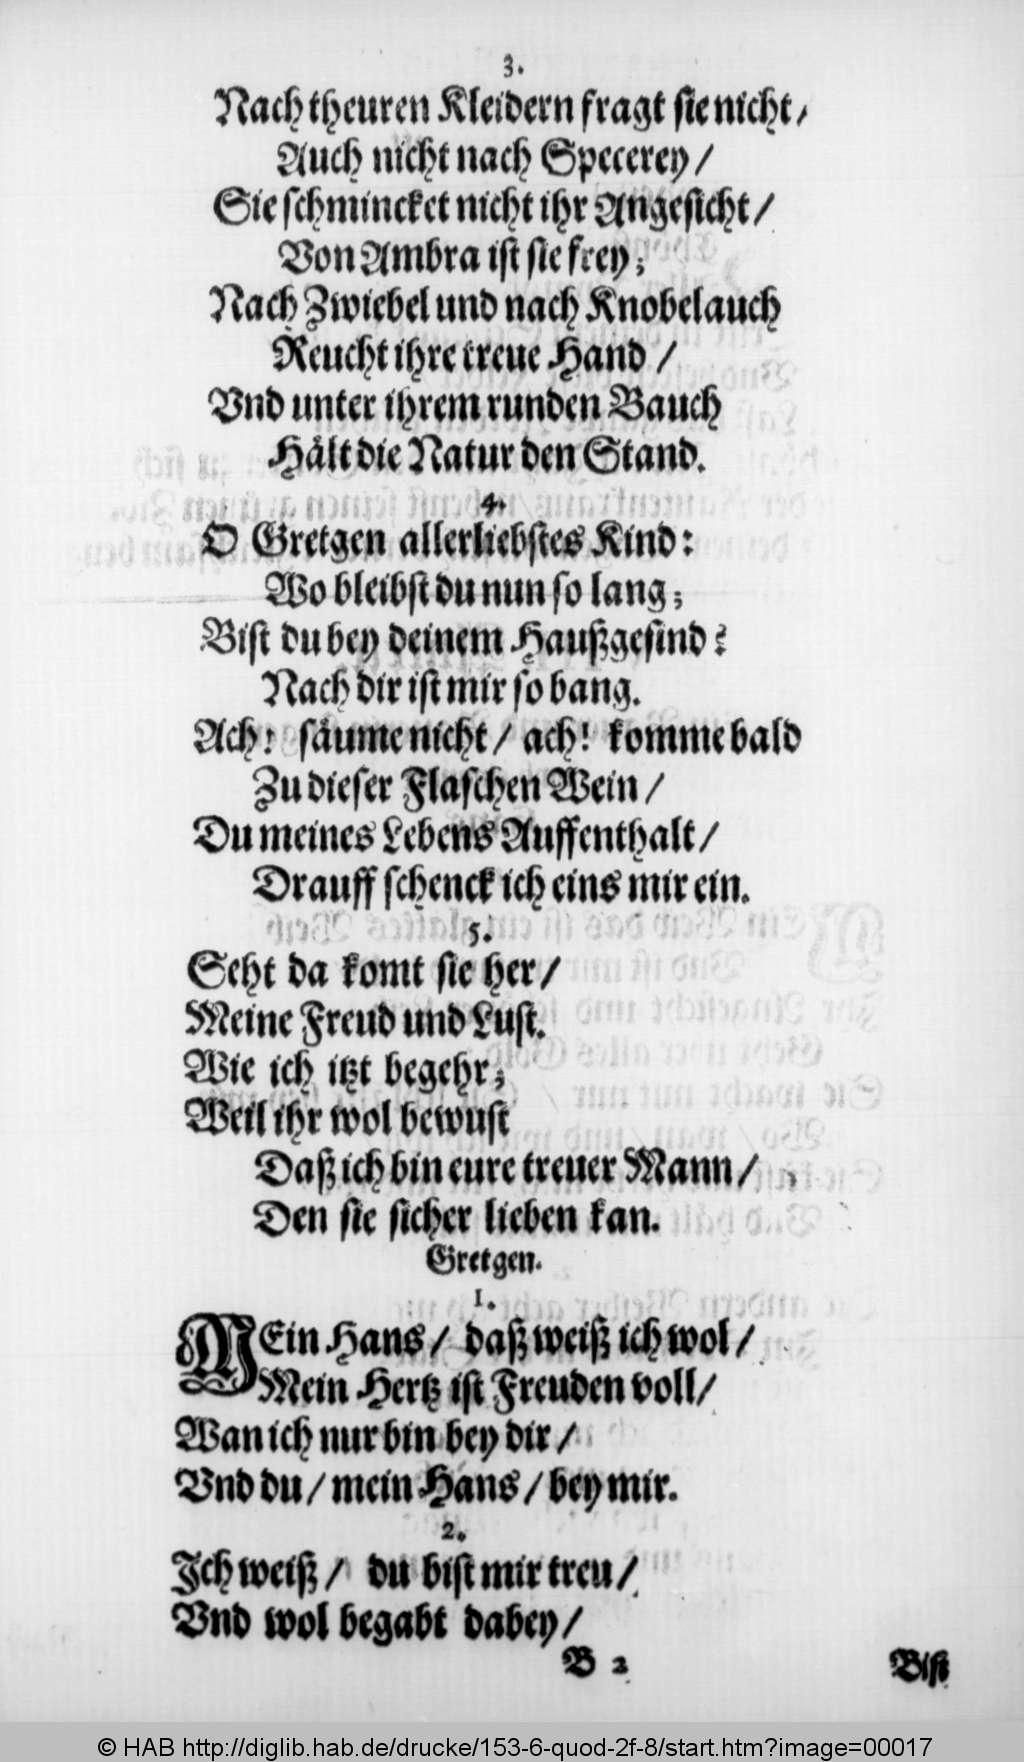 3.
Nach theuren Kleidern fragt sie nicht/
Auch nicht nach Specerey/
Sie schmincket nicht ihr Angesicht/
Von Ambra ist sie frey;
Nach Zwiebel und nach Knobelauch
Reucht ihre treue Hand/
Vnd unter ihrem runden Bauch
Hält die Natur den Stand.
4.
O Gretgen allerliebstes Kind:
Wo bleibst du nun so lang;
Bist du bey deinem Haußgesind?
Nach dir ist mir so bang.
Ach! säume nicht/ ach! komme bald
Zu dieser Flaschen Wein/
Du meines Lebens Auffenthalt/
Drauff schenck ich eins mir ein.
5.
Seht da komt sie her/
Meine Freud und Lust.
Wie ich itzt begehr;
Weil ihr wol bewust
Daß ich bin eure treuer Mann/
Den sie sicher lieben kan.
Gretgen.
1.
MEin Hans/ daß weiß ich wol/
Mein Hertz ist Freuden voll/
Wan ich nur bin bey dir/
Vnd du/ mein Hans/ bey mir.
2.
Ich weiß/ du bist mir treu/
Vnd wol begabt dabey/
B 2 Bist
© HAB http://diglib.hab.de/drucke/153-6-quod-2f-8/start.htm?image=00017